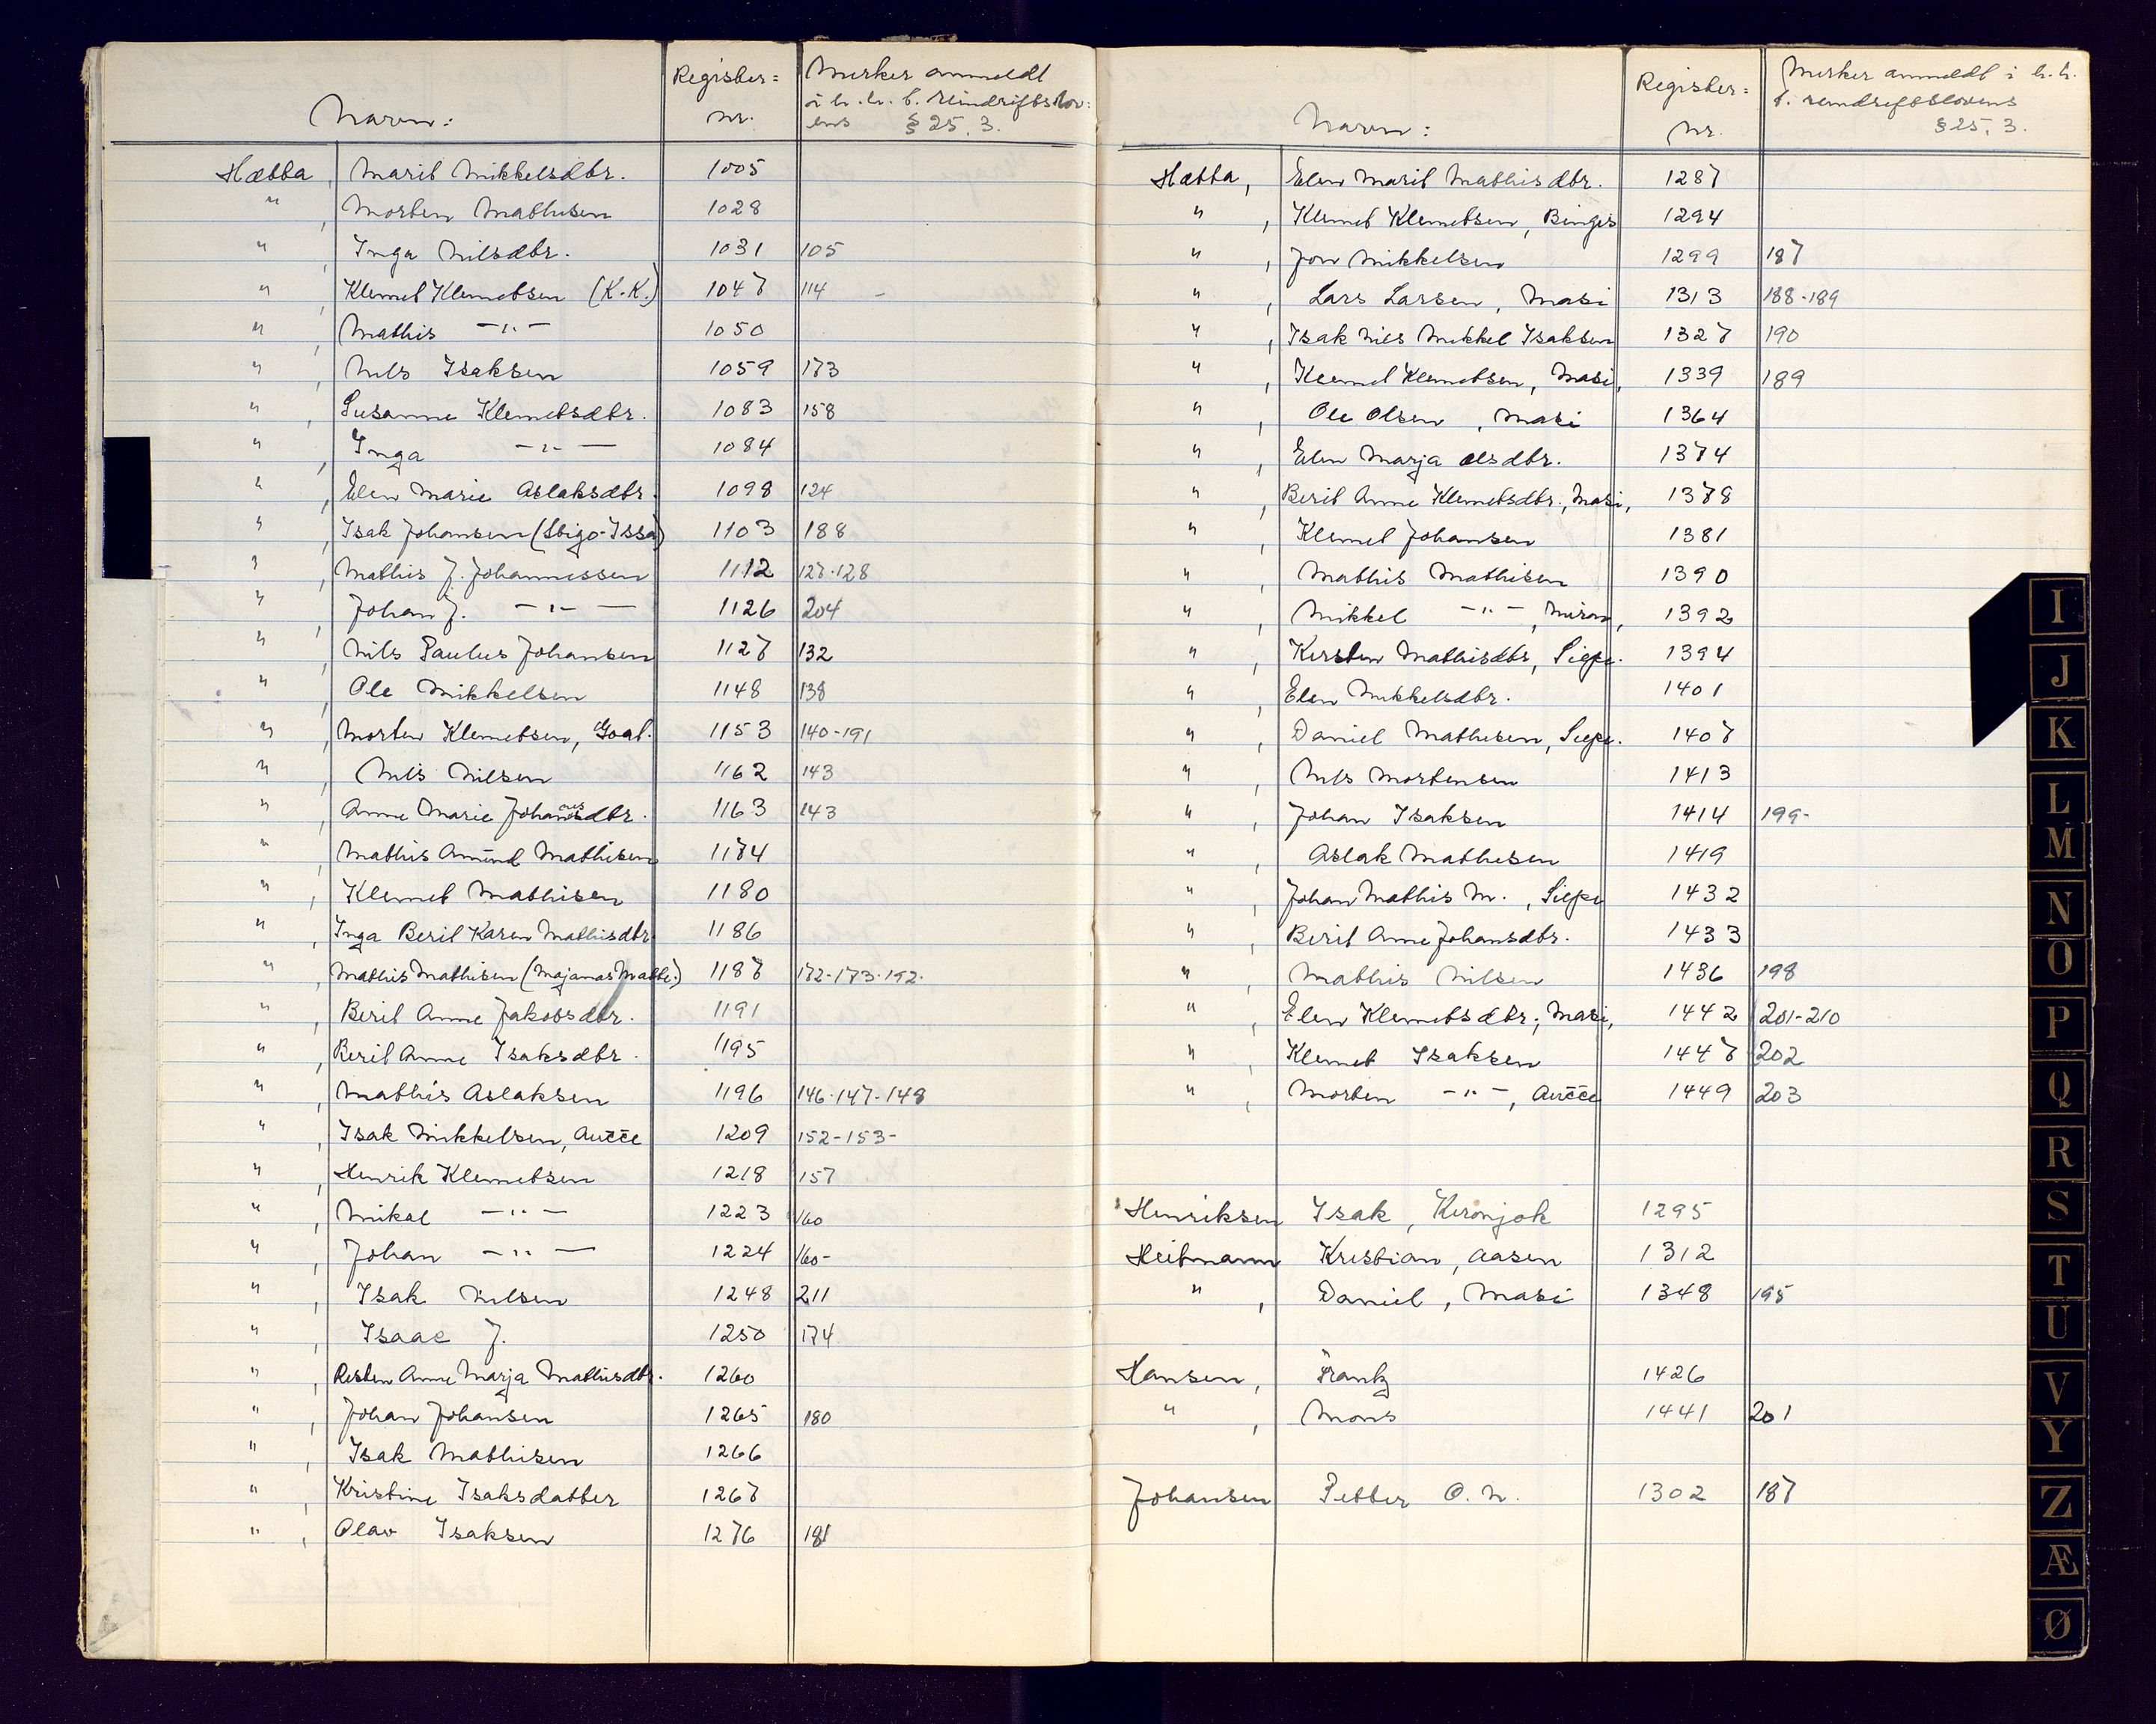 Navn: Register= Merker anmeldt
nr. i h. h. t. reindriftslov=
ens § 25. 3.
Hætta, Marit Mikkelsdtr. 1005
" , Morten Mathisen 1028
" , Inga Nilsdtr. 1031 105
" , Klemet Klemetsen (K.K.) 1047 114 -
" , Mathis -"- 1050
" , Nils Isaksen 1059 173
" , Susanne Klemetsdtr. 1083 158
" , Inga -"- 1084
" , Elen Marie Aslaksdtr. 1098 124
" , Isak Johansen (Stigo-Issa) 1103 188
" , Mathis J. Johannessen 1112 127-128
" , Johan J. -"- 1126 204
" , Nils Paulus Johansen 1127 132
" , Ole Mikkelsen 1148 138
" , Morten Klemetsen, Goat. 1153 140-191
" , Nils Nilsen 1162 143
" , Anne Marie Johannesdtr. 1163 143
" , Mathis Amund Mathisen 1174
" , Klemet Mathisen 1180
" , Inga Berit Karen Mathisdtr. 1186
" , Mathis Mathisen (Majanas Matte.) 1187 172-173-192.
" , Berit Anne Jakobsdtr. 1191
" , Berit Anne Isaksdtr. 1195
" , Mathis Aslaksen 1196 146-147-148
" , Isak Mikkelsen, Aučče 1209 152-153-
" , Henrik Klemetsen 1218 157
" , Mikal -"- 1223 160
" , Johan -"- 1224 160-
" , Isak Nilsen 1248 211
" , Isaac J. 1250 174
" , Risten Anne Marja Mathisdtr. 1260
" , Johan Johansen 1265 180
" , Isak Mathisen 1266
" , Kristine Isaksdatter 1267
" , Olav Isaksen 1276 181
Navn: Register= Merker anmeldt i h. h.
nr. t. reindriftslovens
§ 25. 3.
Hætta, Elen Marit Mathisdtr. 1287
" , Klemet Klemetsen, Binges 1294
" , Jon Mikkelsen 1299 187
" , Lars Larsen, Masi 1313 188-189
" , Isak Nils Mikkel Isaksen 1327 190
" , Klemet Klemetsen, Masi, 1339 189
" , Ole Olsen, Masi 1364
" , Elen Marja Olsdtr. 1374
" , Berit Anne Klemetsdtr., Masi, 1378
" , Klemet Johansen 1381
" , Mathis Mathisen 1390
" , Mikkel -"-, Miron, 1392
" , Kirsten Mathisdtr, Siepe. 1394
" , Elen Mikkelsdtr. 1401
" , Daniel Mathisen, Siepe. 1407
" , Nils Mortensen 1413
" , Johan Isaksen 1414 199-
" , Aslak Mathisen 1419
" , Johan Mathis M., Siepe 1432
" , Berit Anne Johansdtr. 1433
" , Mathis Nilsen 1436 198
" , Elen Klemetsdtr., Masi, 1442 201-210
" , Klemet Isaksen 1447 202
" , Morten -"-, Aučče 1449 203
Henriksen Isak, Keronjok 1295
Heitmann Kristian, Aasen 1312
" , Daniel, Masi 1348 195
Hansen, Frantz 1426
" , Mons 1441 201
Johansen Petter O. N. 1302 187
I
J
K
L
M
N
O
P
Q
R
S
T
U
V
Y
Z
Æ
Ø